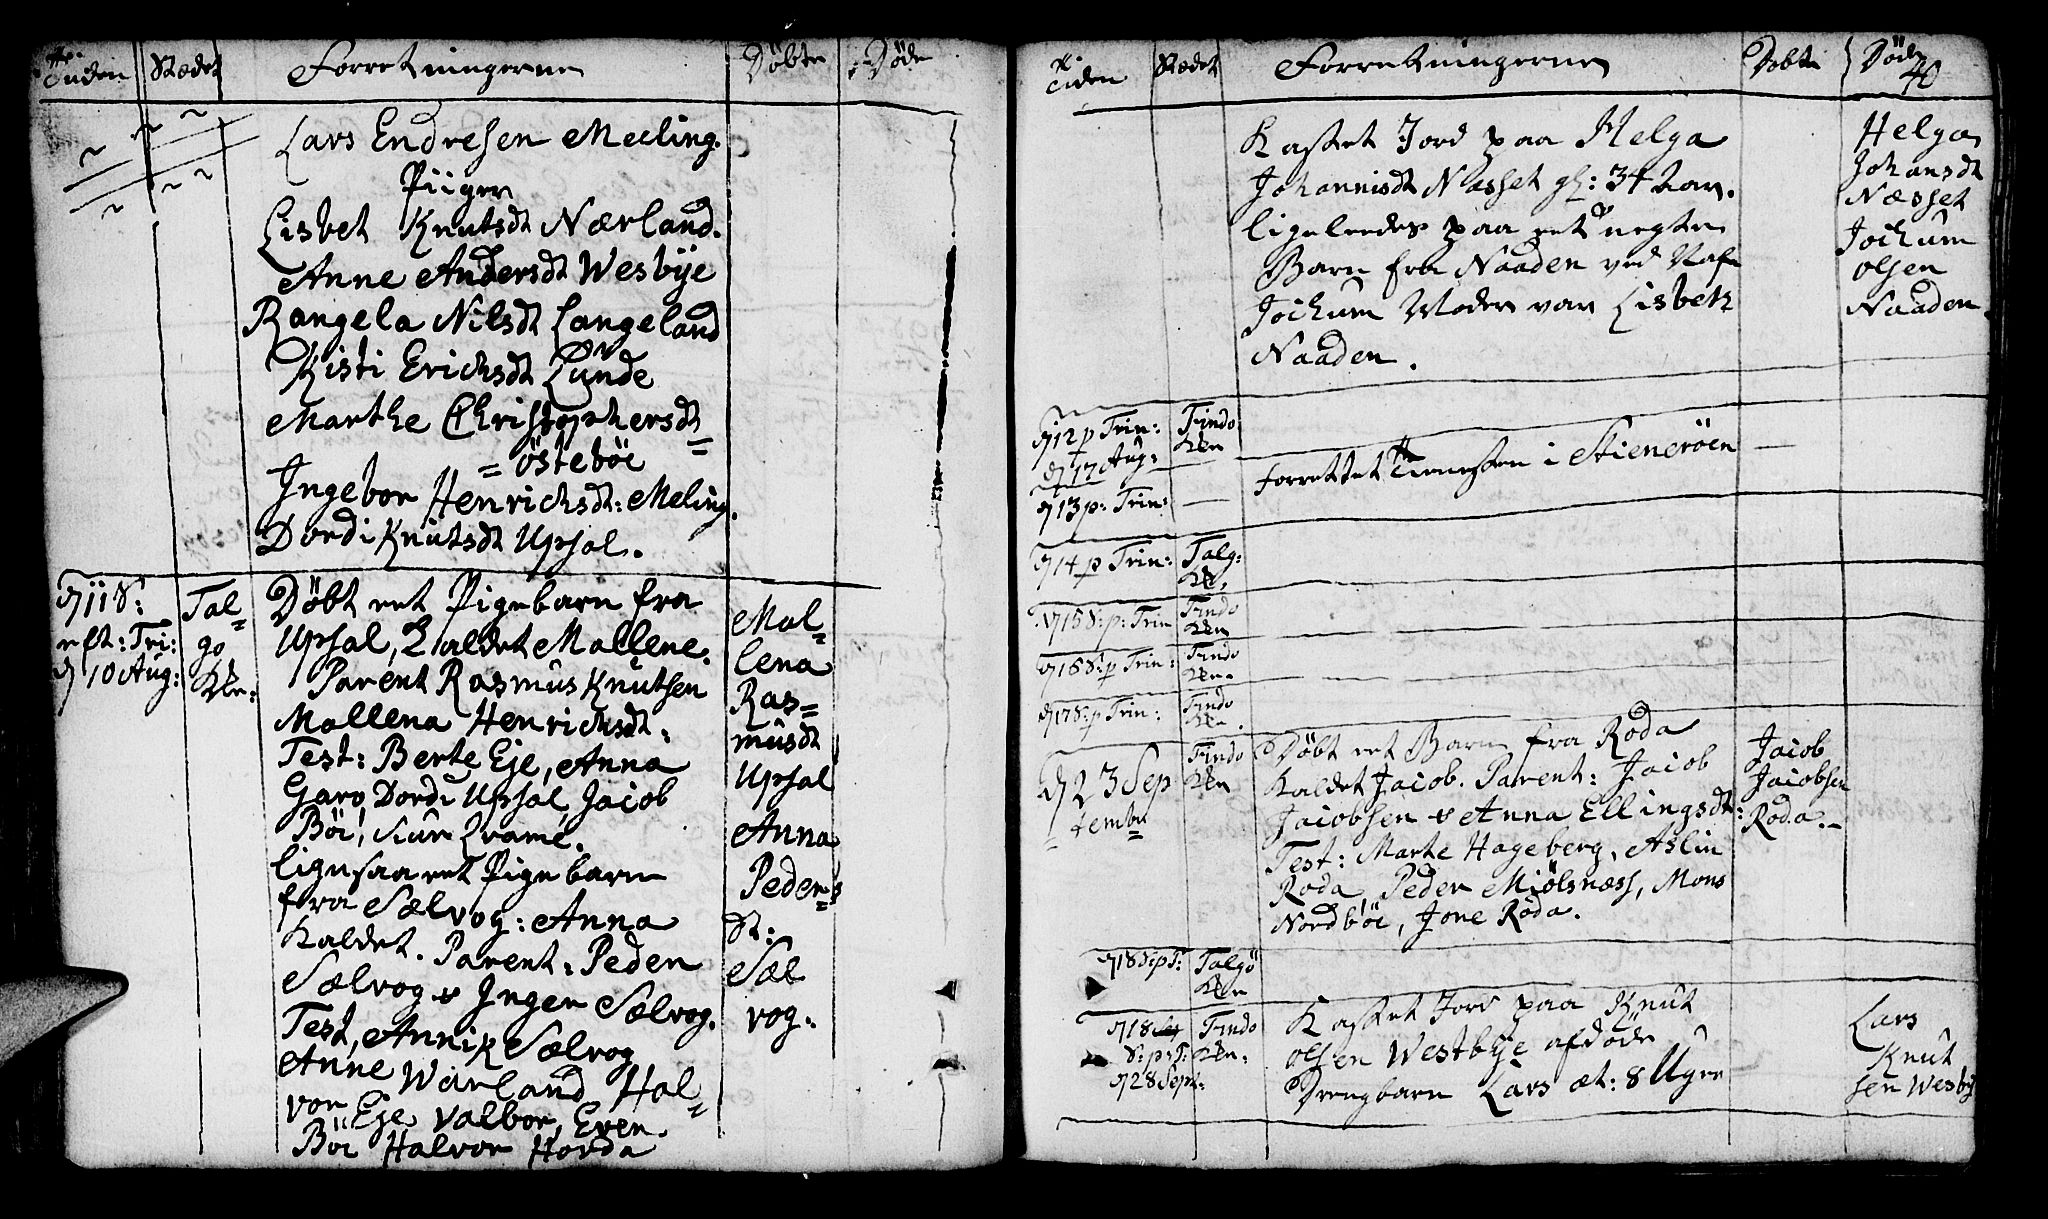 Tiden Stædet Forretningerne Döbte Döde
Lars Endresen Meeling.
Piiger
Lisbet Knutsdt Nærland.
Anne Andersdt Wesbÿe
Rangela Nilsdt Langeland
Kisti Erichsdt Lunde
Marthe Christophersdt
= östeböe
Ingebor Henrichsdt: Meling.
Dordi Knutsdt Upsal.
d 11 S:
eft: Tri:
d 10 Aug:
Tal=
go
Kke:
Döbt eet Pigebarn fra
Upsal, Kaldet Mallene.
Parent Rasmus Knutsen
Mallena Henrichsdt:
Test: Berte Eje, Anna
Garv, Dordi Upsal, Jacob
Böe,
ligesaa eet Pigebarn
fra Sælvog: Anna
Kaldet. Parent: Peder
Sælvog & Inger Sælvog.
Test, Sælvog
Anne Warland Hal=
vor Eje Valbor, Even
Böe Halvor Horda
Mal=
lena
Ras=
musdt
Upsal
Anna
Peder=
dt:
Sæl
vog:
Tiden Stædet Forretningerne Döbte Döde
40
Kastet Jord paa Helga
Johannisdt Næsset gl: 34 Aar.
ligeleedes paa eet uegte
Barn fra Naaden ved Nafn
Jochum Moder var Lisbeth
Naaden.
Helga
Johansdt
Næsset
Jochum
olsen
Naaden.
d 12 p Trin:
d 17 Aug:
Findö
Kke
d 13 p: Trin:
forrettet Tienesten i Stieneröen
d 14 p Trin:
Talg:
Kke,
d 15 S: p: Trin
Findö
Kke
d 16 S: p Trin:
Findö
Kke.
d 17 S: p Trin:
Findö
Kke.
d 23 Sep
tembr
Findö
Kke
Döbt eet Barn fra Roda
Kaldet Jacob. Parent: Jacob
Jacobsen & Anna Ellingsdt:
Test: Marte Hageberg, Aslin
Roda, Peder Miölsnæss, Mons
Nordböe, Jone Röda.
Jacob
Jacobsen
Roda.
d 18 S: p T:
Talgö
Kke
d 18
S: p: T:
d 28 Sept:
Findö
Kke.
Kastet Jord paa Knut
olsen Westbÿe afdöde
Drengbarn Lars æt: 8 Uger
Lars
Knut
sen Wesbÿ